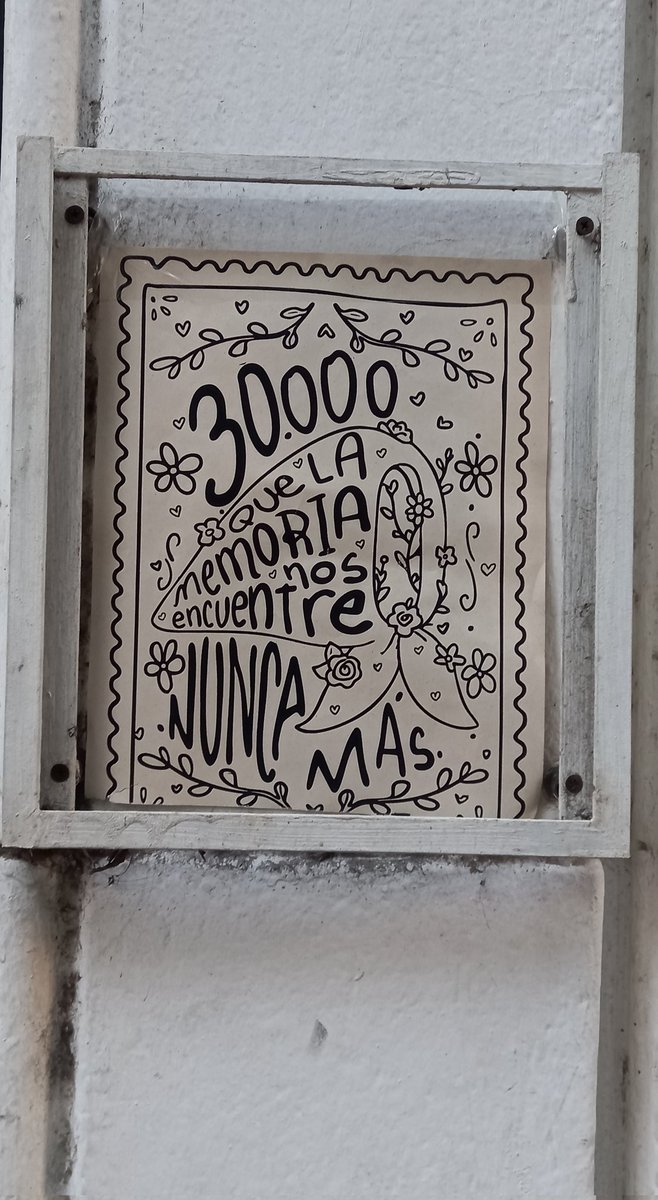 30.000
QUE LA
MEMORIA
NOS
ENCUENTRE
NUNCA
MÁS.